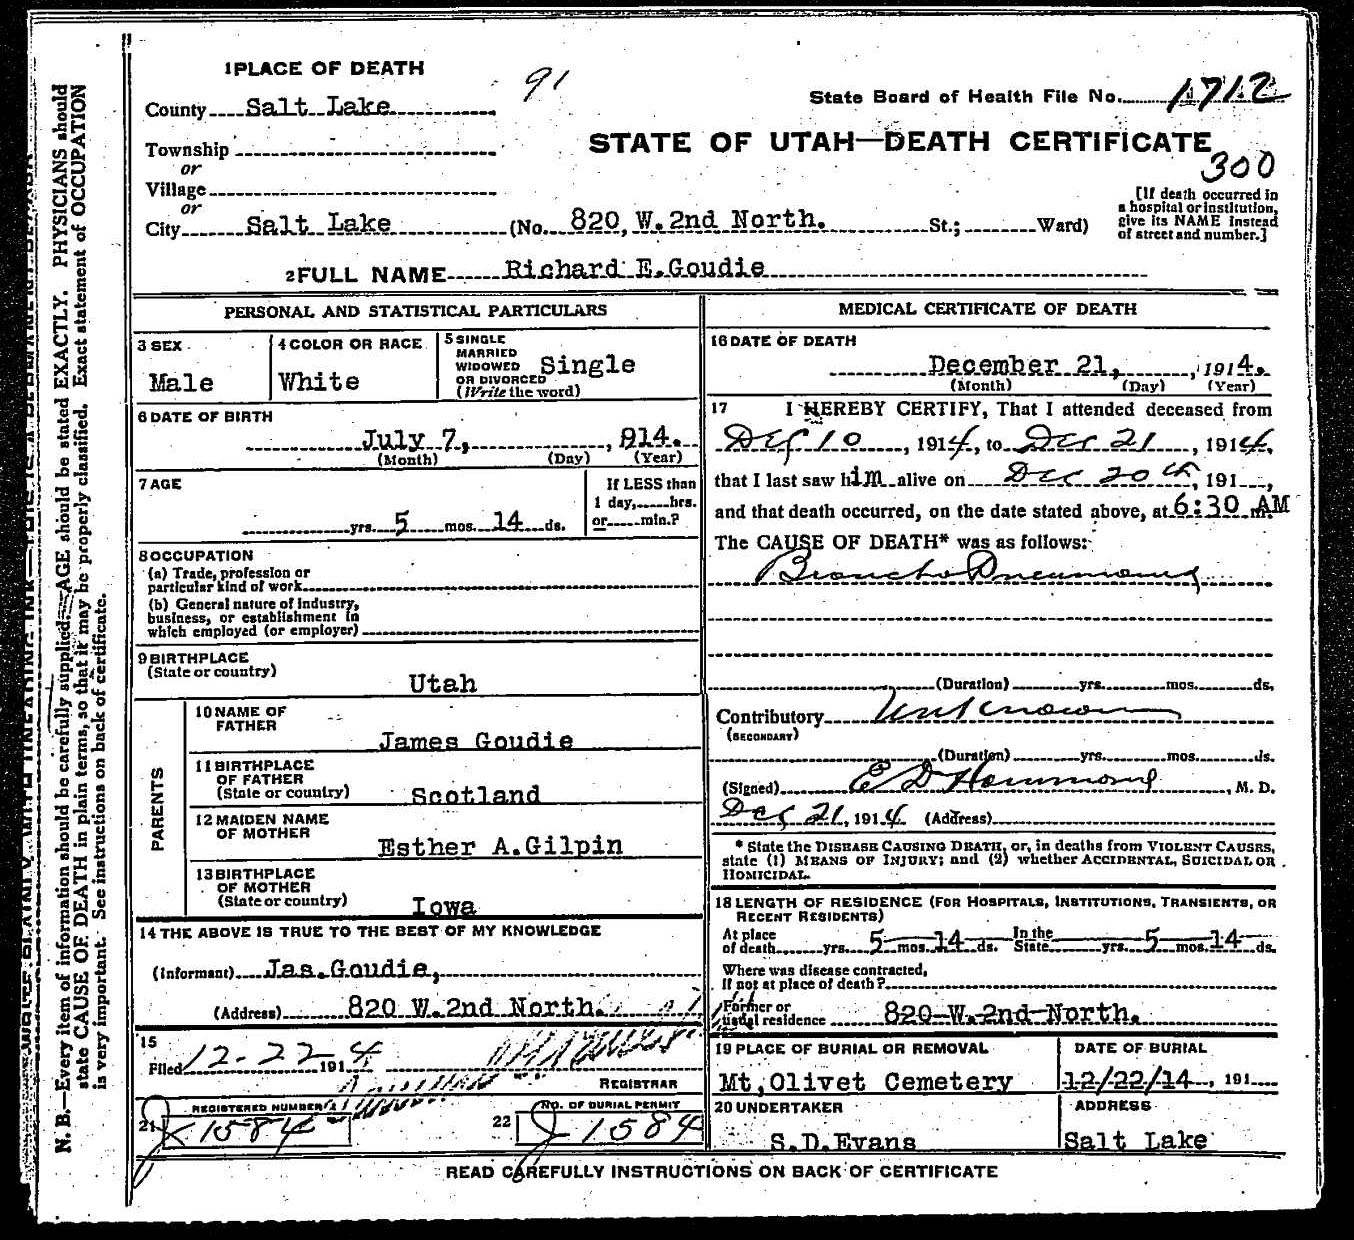 1 PLACE OF DEATH
91
County Salt Lake
State Board of Health File No. 1712
Township
STATE OF UTAH—DEATH CERTIFICATE
or
300
Village
or
City Salt Lake (No. 820, W. 2nd North. St.; Ward)
[If death occurred in
a hospital or institution,
give its NAME instead
of street and number.]
2 FULL NAME Richard E. Goudie
PERSONAL AND STATISTICAL PARTICULARS
3 SEX
Male
4 COLOR OR RACE
White
5 SINGLE
MARRIED
WIDOWED
OR DIVORCED
(Write the word)
Single
6 DATE OF BIRTH
July 7, , 914.
(Month) (Day) (Year)
7 AGE
yrs. 5 mos. 14 ds.
If LESS than
1 day, hrs.
or min.?
8 OCCUPATION
(a) Trade, profession or
particular kind of work
(b) General nature of Industry,
business, or establishment in
which employed (or employer)
9 BIRTHPLACE
(State or country)
Utah
PARENTS
10 NAME OF
FATHER
James Goudie
11 BIRTHPLACE
OF FATHER
(State or country) Scotland
12 MAIDEN NAME
OF MOTHER
Esther A. Gilpin
13 BIRTHPLACE
OF MOTHER
(State or country) Iowa
14 THE ABOVE IS TRUE TO THE BEST OF MY KNOWLEDGE
(Informant) Jas. Goudie,
(Address) 820 W. 2nd North.
15
Filed 12-22 1914
REGISTRAR
REGISTERED NUMBER
21 J 1584
NO. OF BURIAL PERMIT
22 J 1584
MEDICAL CERTIFICATE OF DEATH
16 DATE OF DEATH
December 21, , 1914.
(Month) (Day) (Year)
17 I HEREBY CERTIFY, That I attended deceased from
Dec 10, 1914, to Dec 21, 1914,
that I last saw him alive on Dec 20th, 191 ,
and that death occurred, on the date stated above, at 6:30 AM m.
The CAUSE OF DEATH* was as follows:
Broncho Pneumonia
(Duration) yrs. mos. ds.
Contributory Unknown
(SECONDARY)
(Duration) yrs. mos. ds.
(Signed) E D Hammond, M. D.
Dec 21, 1914 (Address)
* State the DISEASE CAUSING DEATH, or, in deaths from VIOLENT CAUSES,
state (1) MEANS OF INJURY; and (2) whether ACCIDENTAL, SUICIDAL OR
HOMICIDAL.
18 LENGTH OF RESIDENCE (FOR HOSPITALS, INSTITUTIONS, TRANSIENTS, OR
RECENT RESIDENTS)
At place
of death yrs. 5 mos. 14 ds. In the State yrs. 5 mos. 14 ds.
Where was disease contracted,
If not at place of death?
Former or
usual residence 820 W. 2nd North.
19 PLACE OF BURIAL OR REMOVAL
Mt, Olivet Cemetery
DATE OF BURIAL
12/22/14 , 191
20 UNDERTAKER
S.D. Evans
ADDRESS
Salt Lake
READ CAREFULLY INSTRUCTIONS ON BACK OF CERTIFICATE
N. B.—Every item of information should be carefully supplied. AGE should be stated EXACTLY. PHYSICIANS should
state CAUSE OF DEATH in plain terms, so that it may be properly classified. Exact statement of OCCUPATION
is very important. See instructions on back of certificate.